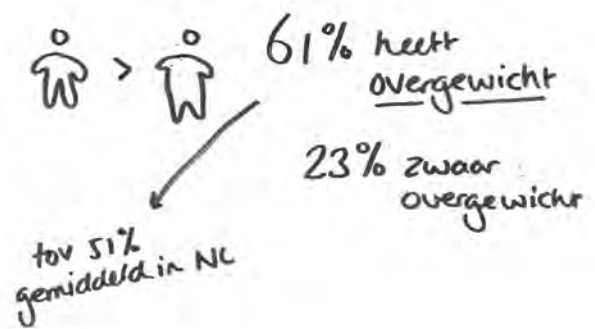 61% heeft
overgewicht
23% zwaar
overgewicht
tov 51%
gemiddeld in NL